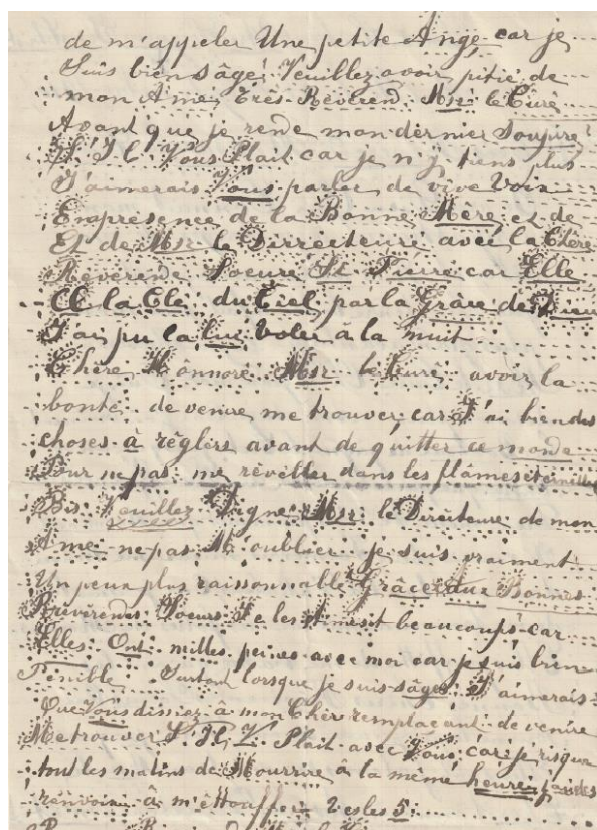 de m'appeler Une petite Ange car je
Suis bien sâge! Veuillez avoir pitié de
mon Âme, Très Révérend Msr le Curé
Avant que je rende mon dernier Soupire!
S. Il Vous Plait car je n'y tiens plus
J'aimerais Vous parler de vive Voix
En présence de la Bonne Mère, et de
Et de Msr le Dirrecteure avec la Chère
Révérende Soeure St Pierre car Elle
la Clé du Ciel par la Grâce de Dieu
J'ai pu la lui voler à la nuit
Chère Hônnoré Msr le Curé avoir la
bonté de venire me trouver car J'ai bien des
choses à réglère avant de quitter ce monde
Pour ne pas me réveiller dans les flâmes éternelles
Bis Veuillez Digne Msr le Directeure de mon
Âme ne pas M'oublier je suis vraiment
Un peux plus raissonnable Grâce aux Bonnes
Révérendes Soeurs Je les beaucoups car
Elles Ont milles peines avec moi car je suis bien
Pénible Surtout lorsque je suis sâge. J'aimerais
Que Vous dissiez à mon Cher remplaçant de venire
Me trouver S. Il V. Plait avec Vous car je risque
tout les matins de Mourrire à la même heure, j'ai des
renvoix à m'éttouffer les 5